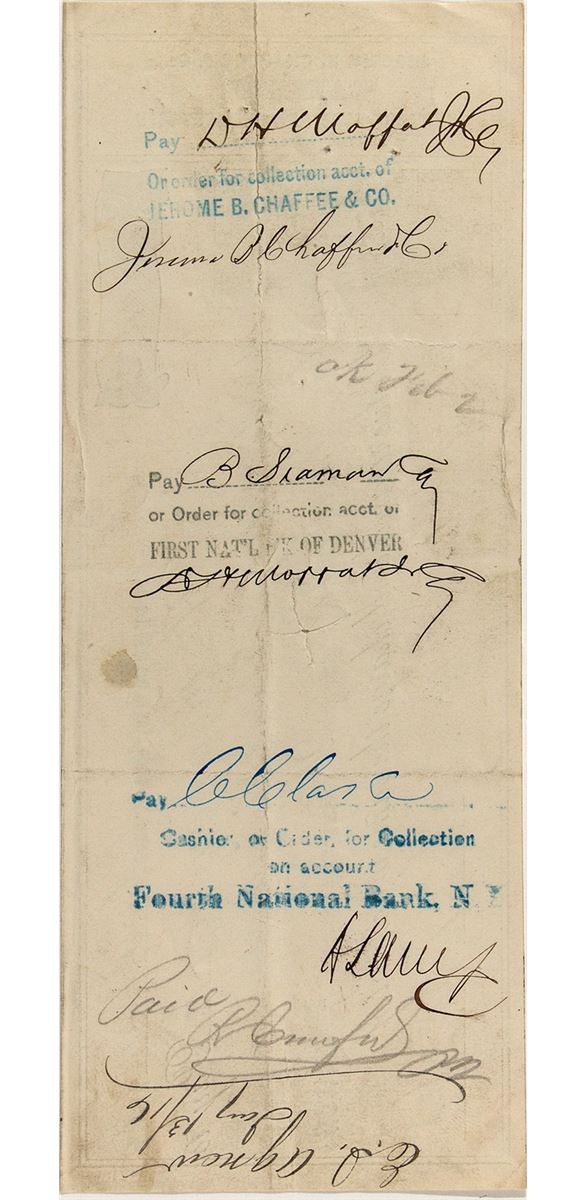 Pay D H Moffat Jr Cas,
Or order for collection acct. of
JEROME B. CHAFFEE & CO.
Jerome B Chaffee & Co.
ok Feb 2
Pay B Seaman
or Order for collection acct. of
FIRST NAT'L B'K OF DENVER
D H Moffat Jr
Pay
Cashier or Order, for Collection
on account
Fourth National Bank, N. Y
Paid
E. S. Agnew